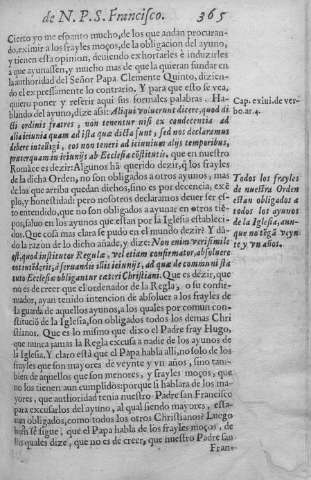 de N. P. S. Francisco. 365
Cierto yo me espanto mucho, de los que andan procuran-
do, eximir a los frayles moços, de la obligacion del ayuno,
y tienen esta opinion, deuiendo exhortarles è induzirles
a que ayunassen, y mucho mas de que la quieran fundar en
la authoridad del Señor Papa Clemente Quinto, dizien-
do el expressamente lo contrario. Y para que esto se vea,
quiero poner y referir aqui sus formales palabras. Ha-
blando del ayuno, dize assi: Aliqui voluerunt dicere, quod di
cti ordinis fratres, non tenentur nisi ex condecentia ad
alia ieiunia quam ad ista quæ dicta sunt, sed nos declaramus
debere intelligi, eos non teneri ad ieiunium alijs temporibus,
præterquam in ieiunijs ab Ecclesia cõstitutis, que en nuestro
Romãce es dezir: Algunos hã querido dezir, q̃ los frayles
de la dicha Orden, no son obligados a otros ayunos, mas
de los que arriba quedan dichos, sino es por decencia, exẽ
plo, y honestidad: pero nosotros declaramos deuer ser es-
to entendido, que no son obligados a ayunar en otro tiẽ-
po, saluo en los ayunos que estan por la Iglesia establecidos.
Que cosa mas clara se pudo en el mundo dezir? Y dã-
do la razon de lo dicho añade, y dize: Non enim verisimile
est, quod institutor Regulæ, vel etiam confirmator, absoluere
intenderit, à seruandis illis ieiunijs, ad quæ de communi sta
tuto Ecclesiæ obligantur cæteri Christiani. Que es dezir, que
no es de creer que el ordenador de la Regla, o su confir-
mador, ayan tenido intencion de absoluer a los frayles de
la guarda de aquellos ayunos, a los quales por comun con-
stituciõ de la Iglesia, son obligados todos los demas Chri
stianos. Que es lo mismo que dixo el Padre fray Hugo,
que nunca jamas la Regla escusa a nadie de los ayunos de
la Iglesia. Y claro està que el Papa habla alli, no solo de los
frayles que son mayores de veynte y vn años, sino tam-
bien de aquellos que son menores, y frayles moços, que
no los tienen aun cumplidos: porque si hablara de los ma-
yores, que authoridad tenia nuestro Padre san Francisco
para escusarlos del ayuno, al qual siendo mayores, esta-
uan obligados, como todos los otros Christianos? Luego
bien se sigue, que el Papa habla de los frayles moços, de
los quales dize, que no es de creer, que nuestro Padre san
Fran-
Cap. exiui. de ver-
bo. ar. 4.
Todos los frayles
de nuestra Orden
estan obligados a
todos los ayunos
de la Iglesia, aun-
que no tẽgã veyn-
te y vn años.